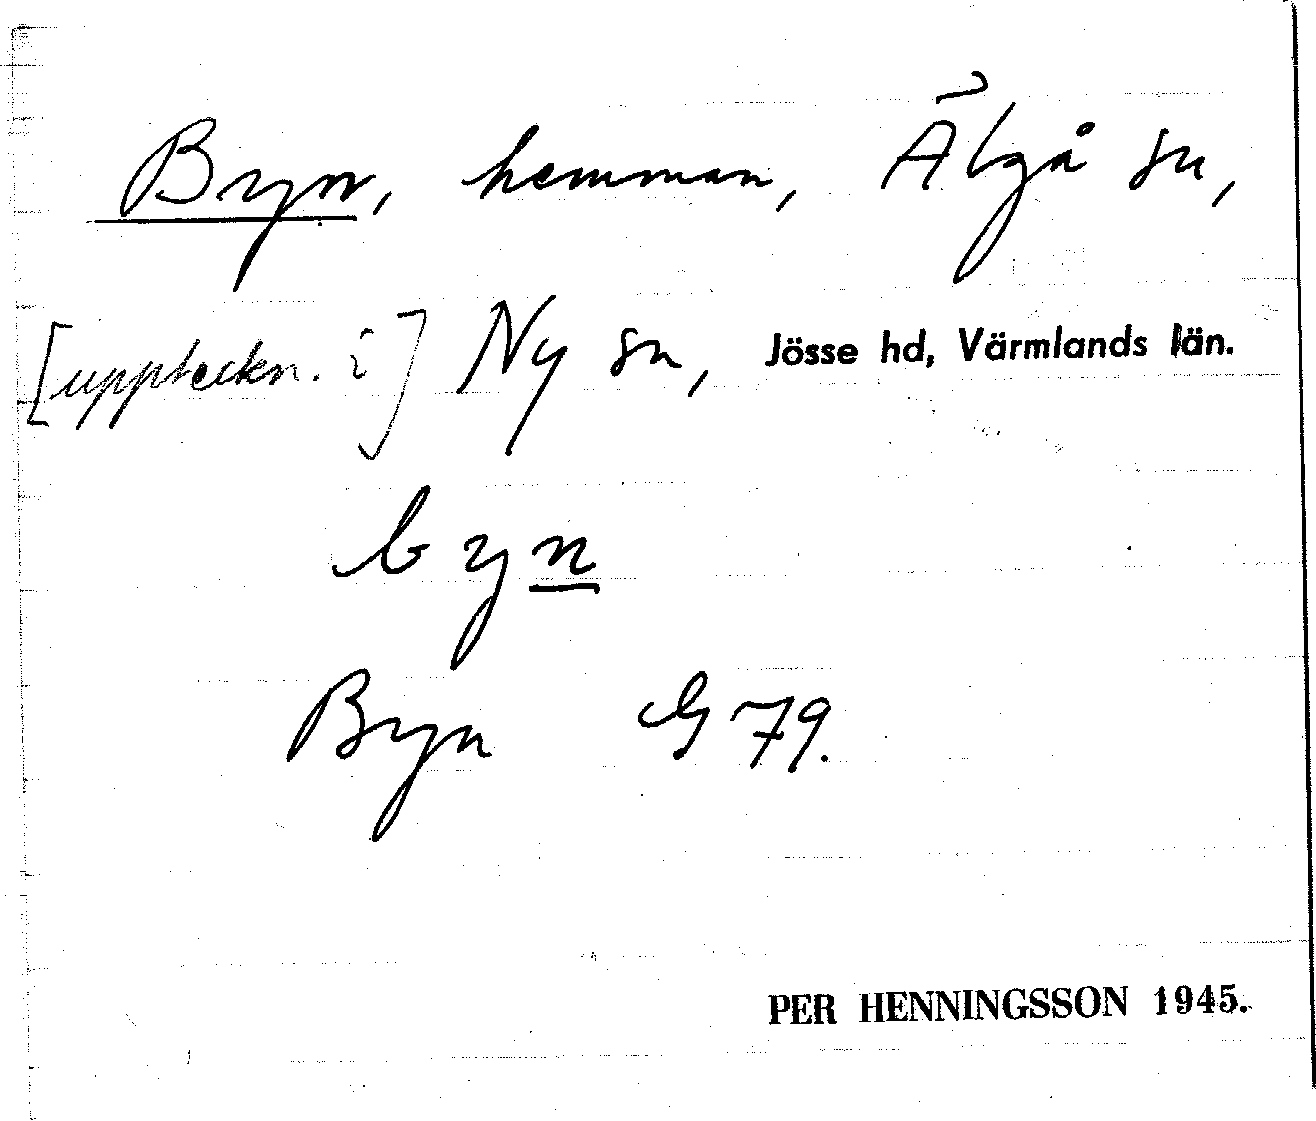 Byn, hemman, Älgå sn,
[uppteckn. i] Ny sn, Jösse hd, Värmlands län.
byn
Byn G 79.
PER HENNINGSSON 1945.